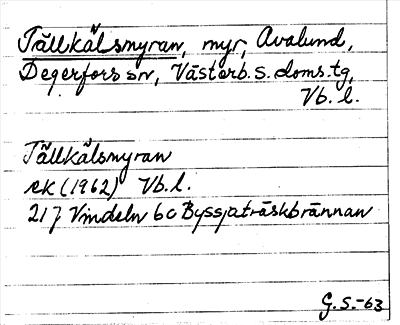 Tällkälsmyran, myr, Avalund,
Degerfors sn, Västerb. s. doms. tg,
Vb. l.
Tällkälsmyran
ek (1962) Vb. l.
21 J Vindeln 6c Byssjaträskbrännan
G. S.-63